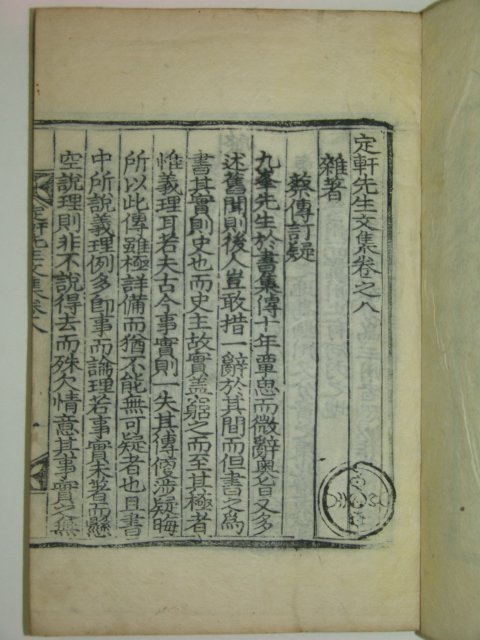 定軒先生文集卷之八
雜著
蔡傳訂疑
九峯先生於書集傳十年覃思而微辭奧旨又多
述舊聞則後人豈敢措一辭於其間而但書之爲
書其實則史也而史主故實盖窮之而至其極者
惟義理耳若夫古今事實則一失其傳僾涉疑晦
所以此傳雖極詳備而猶不能無可疑者也且書
中所說義理例多卽事而論理若事實未著而懸
空說理則非不說得去而殊欠情意其事實之無
定軒先生文集卷八